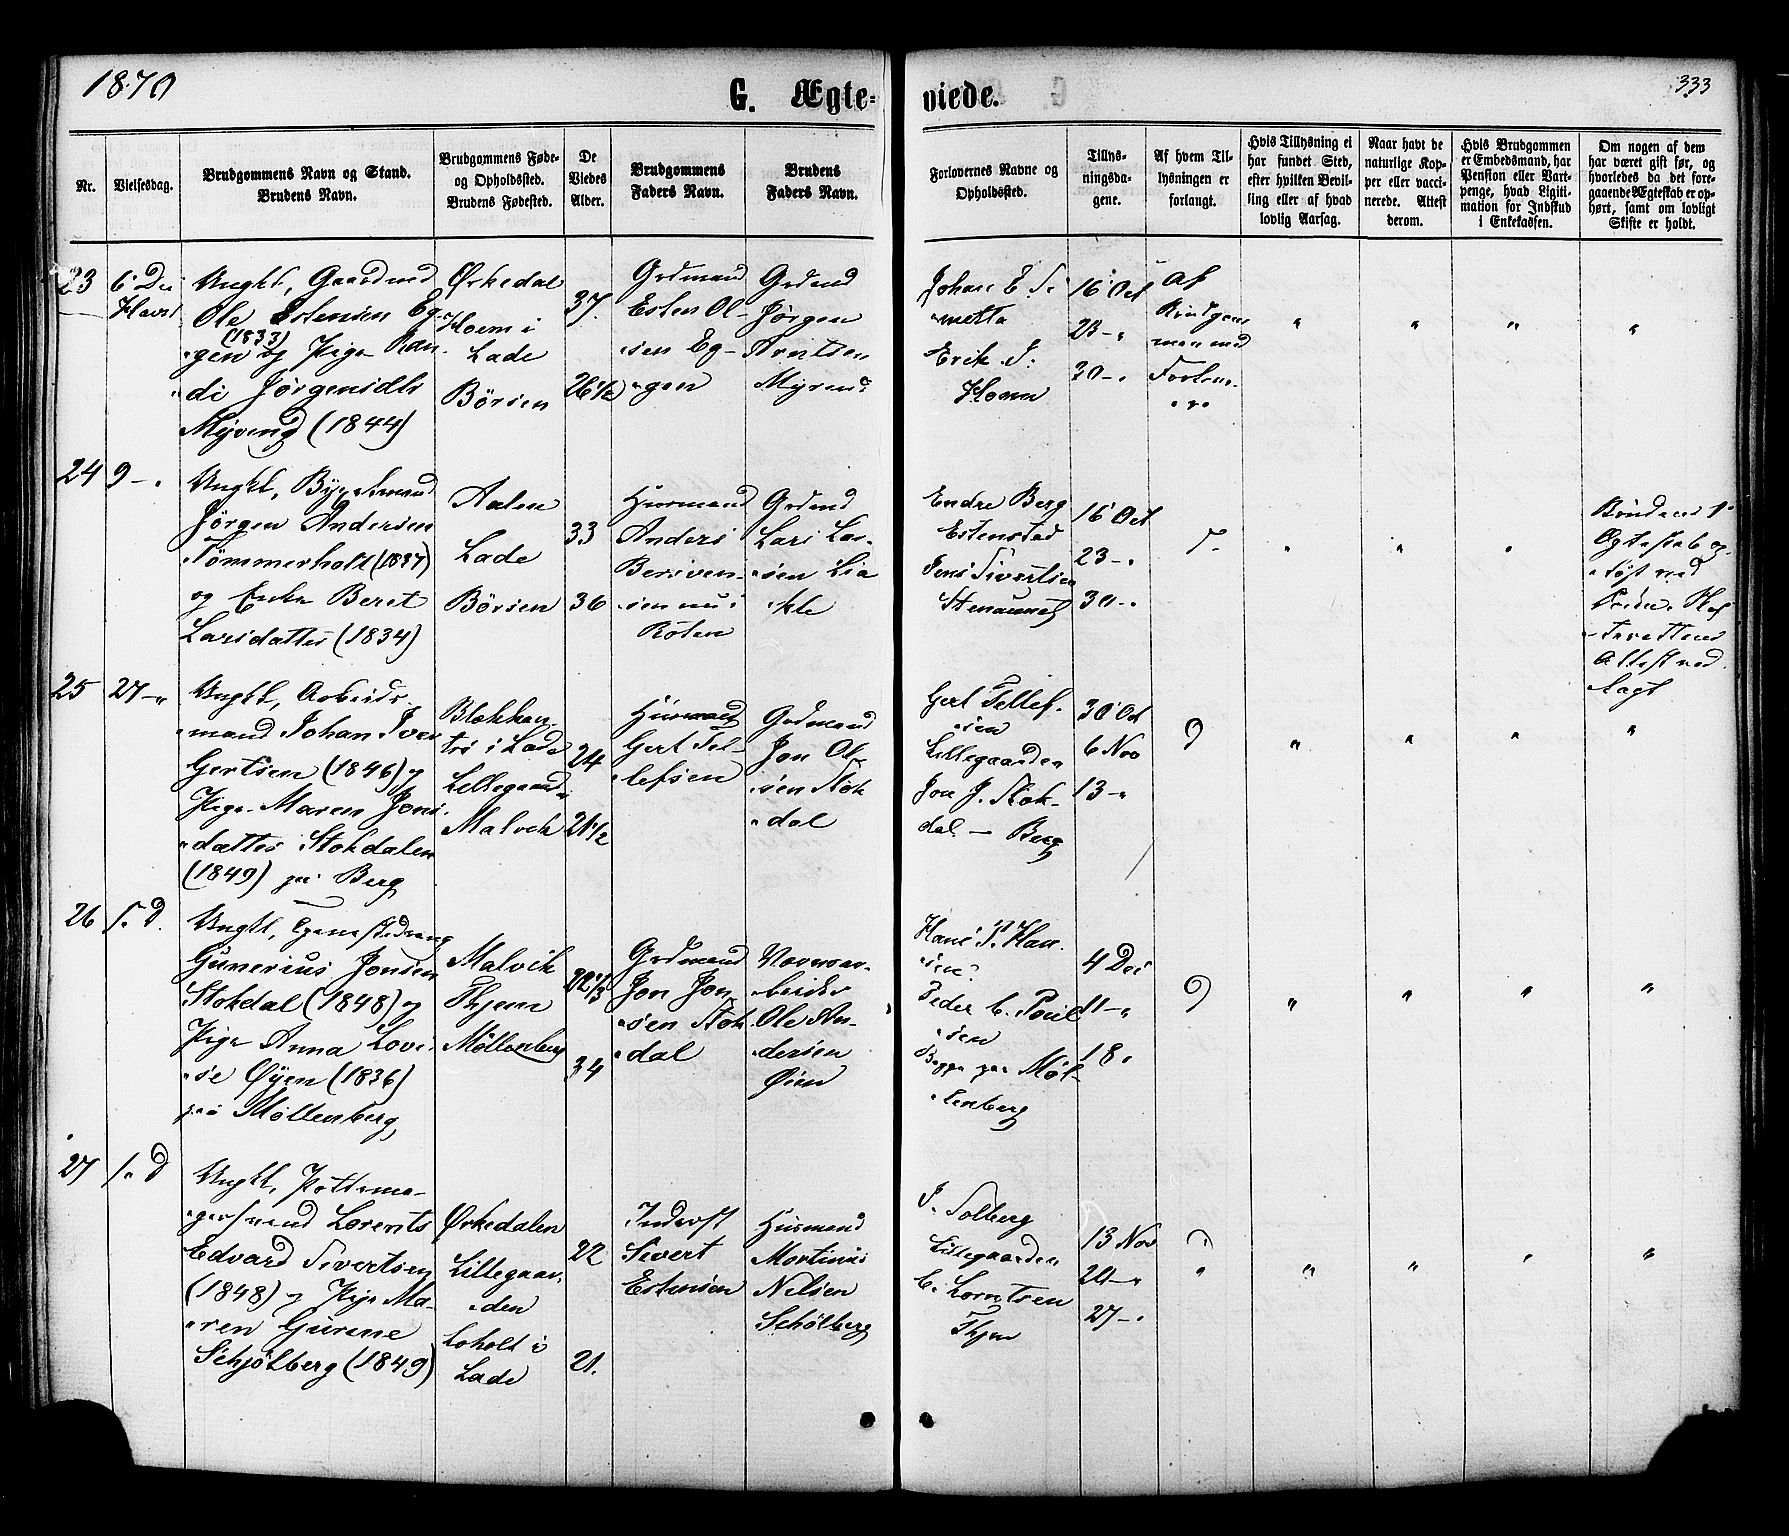 1870
G. Ægte-
viede.
333
Nr.
Vielsesdag.
Brudgommens Navn og Stand.
Brudens Navn.
Brudgommens Føde-
og Opholdssted.
Brudens Fødested.
De
Viedes
Alder.
Brudgommens
Faders Navn.
Brudens
Faders Navn.
Forlovernes Navne og
Opholdssted.
Tillys-
ningsda-
gene.
Af hvem Til-
lysningen er
forlangt.
Hvis Tillysning ei
har fundet Sted,
efter hvilken Bevil-
ling eller af hvad
lovlig Aarsag.
Naar havt de
naturlige Kop-
per eller vacci-
nerede. Attest
derom.
Hvis Brudgommen
er Embedsmand, har
Pension eller Vart-
penge, hvad Ligiti-
mation for Indskud
i Enkekassen.
Om nogen af dem
har været gift før, og
hvorledes da det fore-
gaaende Ægteskab er op-
hørt, samt om lovligt
Skifte er holdt.
23
Ungkl, Gaardmd
Ole Estensen Eg-
(1833)
gen og Pige Ran-
di Jørgensdtr
(1844)
Ørkedal
Hoem i
Lade
Børsen
37.
26 1/2
Grdmand
Esten Ol-
sen Eg-
gen
Grdmd
Jørgen
Arntsen
Johan E.
Erik J.
16 Oct
23 -"
30 -"
Af
" " " "
24
9 -"
Ungkl,
Jørgen Andersen
Tømmerholt (1837)
og Enke Beret
Larsdatter (1834)
Aalen
Lade
Børsen
33
36
Husmand
Anders
Grdmd
Lars Lar-
sen Lia
Endre Berg
Estenstad
Jens Sivertsen
16 Oct
23 -"
30 -"
" " "
Brudens 1e
Attest ved
lagt
25
27 -"
Ungkl, Arbeids-
mand Johan Iver
Gertsen (1846) og
Pige Maren Jons-
datter Stokdalen
(1849) paa Berg
Blakkan-
i Lade
Lillegaarden
Malvik
24
21 1/2
Husmand
Gert Tel-
lefsen
Grdmand
Jon Ol-
sen Stok
dal
Gert Tellef-
sen
Lillegaarden
Jon J. Stok-
dal - Berg
30 Oct
6 Nov
13 -"
" " " "
26
Ungkl,
Gunerius Jonsen
Stokdal (1848) og
Pige Anna Lovi-
se Øyen (1836)
paa Møllenberg
Malvik
Thjem
Møllenberg
22 1/3
34
Grdmand
Jon Jon
sen Stok
dal
Ole An-
dersen
Øien
Hans P. Han-
sen
Peder C. Poul
sen
paa Møl-
lenberg
4 Dec
11 -"
18 "
" " " "
27
Ungkl, Pottema-
gersvend Lorents
Edvard Sivertsen
(1848) og Pige Ma-
ren Gurine
Schjølberg (1849)
Ørkedalen
Lillegaar-
den
Loholt i
Lade
22
21.
Inderst
Sivert
Estensen
Husmand
Martinus
Nilsen
Schølberg
J. Solberg
Lillegaarden
C. Lorntsen
Thjem
13 Nov
20 -"
27 -"
" " " " "